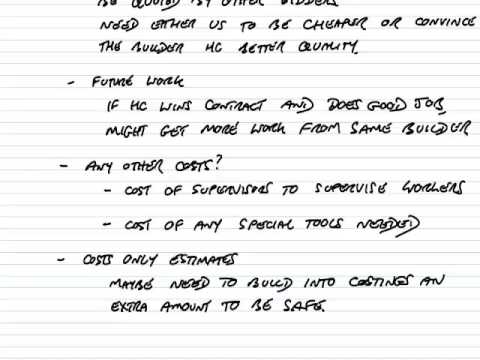 BE QUOTED BY OTHER BIDDERS
NEED EITHER US TO BE CHEAPER OR CONVINCE
THE BUILDER HC BETTER QUALITY.
- FUTURE WORK
IF HC WINS CONTRACT AND DOES GOOD JOB
MIGHT GET MORE WORK FROM SAME BUILDER
- ANY OTHER COSTS?
- COST OF SUPERVISORS TO SUPERVISE WORKERS
- COST OF ANY SPECIAL TOOLS NEEDED
- COSTS ONLY ESTIMATES
MAYBE NEED TO BUILD INTO COSTINGS AN
EXTRA AMOUNT TO BE SAFE.